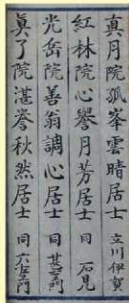 真月院孤峯雲晴居士 立川伊賀
紅林院心譽月芳居士 同 石見
光岳院善翁調心居士 同 甚左衛門
眞了院湛誉秋然居士 同 六左衛門